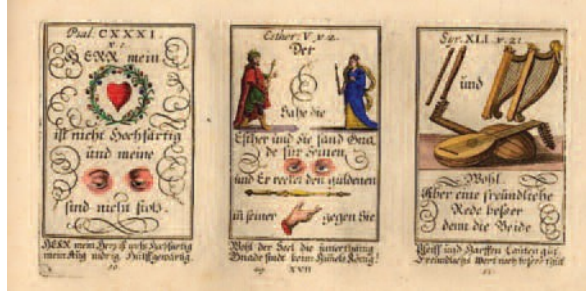 Psal. CXXXI.
v. 1.
HERR mein
ist nicht Hochfärtig
und meine
sind nicht stoltz.
HERR mein Hertz ist nicht Hochfärtig
mein Aug
Esther. V. v. 2.
Der
Sahe die
Esther und Sie fand Gna
de für Seinen
und Er reckte den güldenen
in seiner gegen Sie
Wohl der Seel die
Gnade findt beim König!
XVII
Syr. XLI. v. 21
und
Wohl.
Aber eine freündliche
Rede besser
denn die Beide
Pfeiff und Harffen Lauten gut
Freundlichs Wort noch besser thut